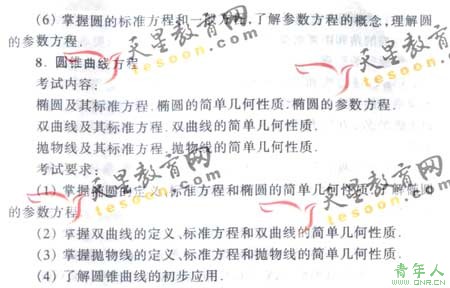 (6) 掌握圆的标准方程和一般方程.了解参数方程的概念,理解圆
的参数方程.
8. 圆锥曲线方程
考试内容:
椭圆及其标准方程.椭圆的简单几何性质.椭圆的参数方程.
双曲线及其标准方程.双曲线的简单几何性质.
抛物线及其标准方程.抛物线的简单几何性质.
考试要求:
(1) 掌握椭圆的定义、标准方程和椭圆的简单几何性质,了解椭圆
的参数方程.
(2) 掌握双曲线的定义、标准方程和双曲线的简单几何性质.
(3) 掌握抛物线的定义、标准方程和抛物线的简单几何性质.
(4) 了解圆锥曲线的初步应用.
天星教育网
tesoon.com
天星教育网
tesoon.com
天星教育网
tesoon.com
天星教育网
tesoon.com
青年人
WWW.QNR.CN